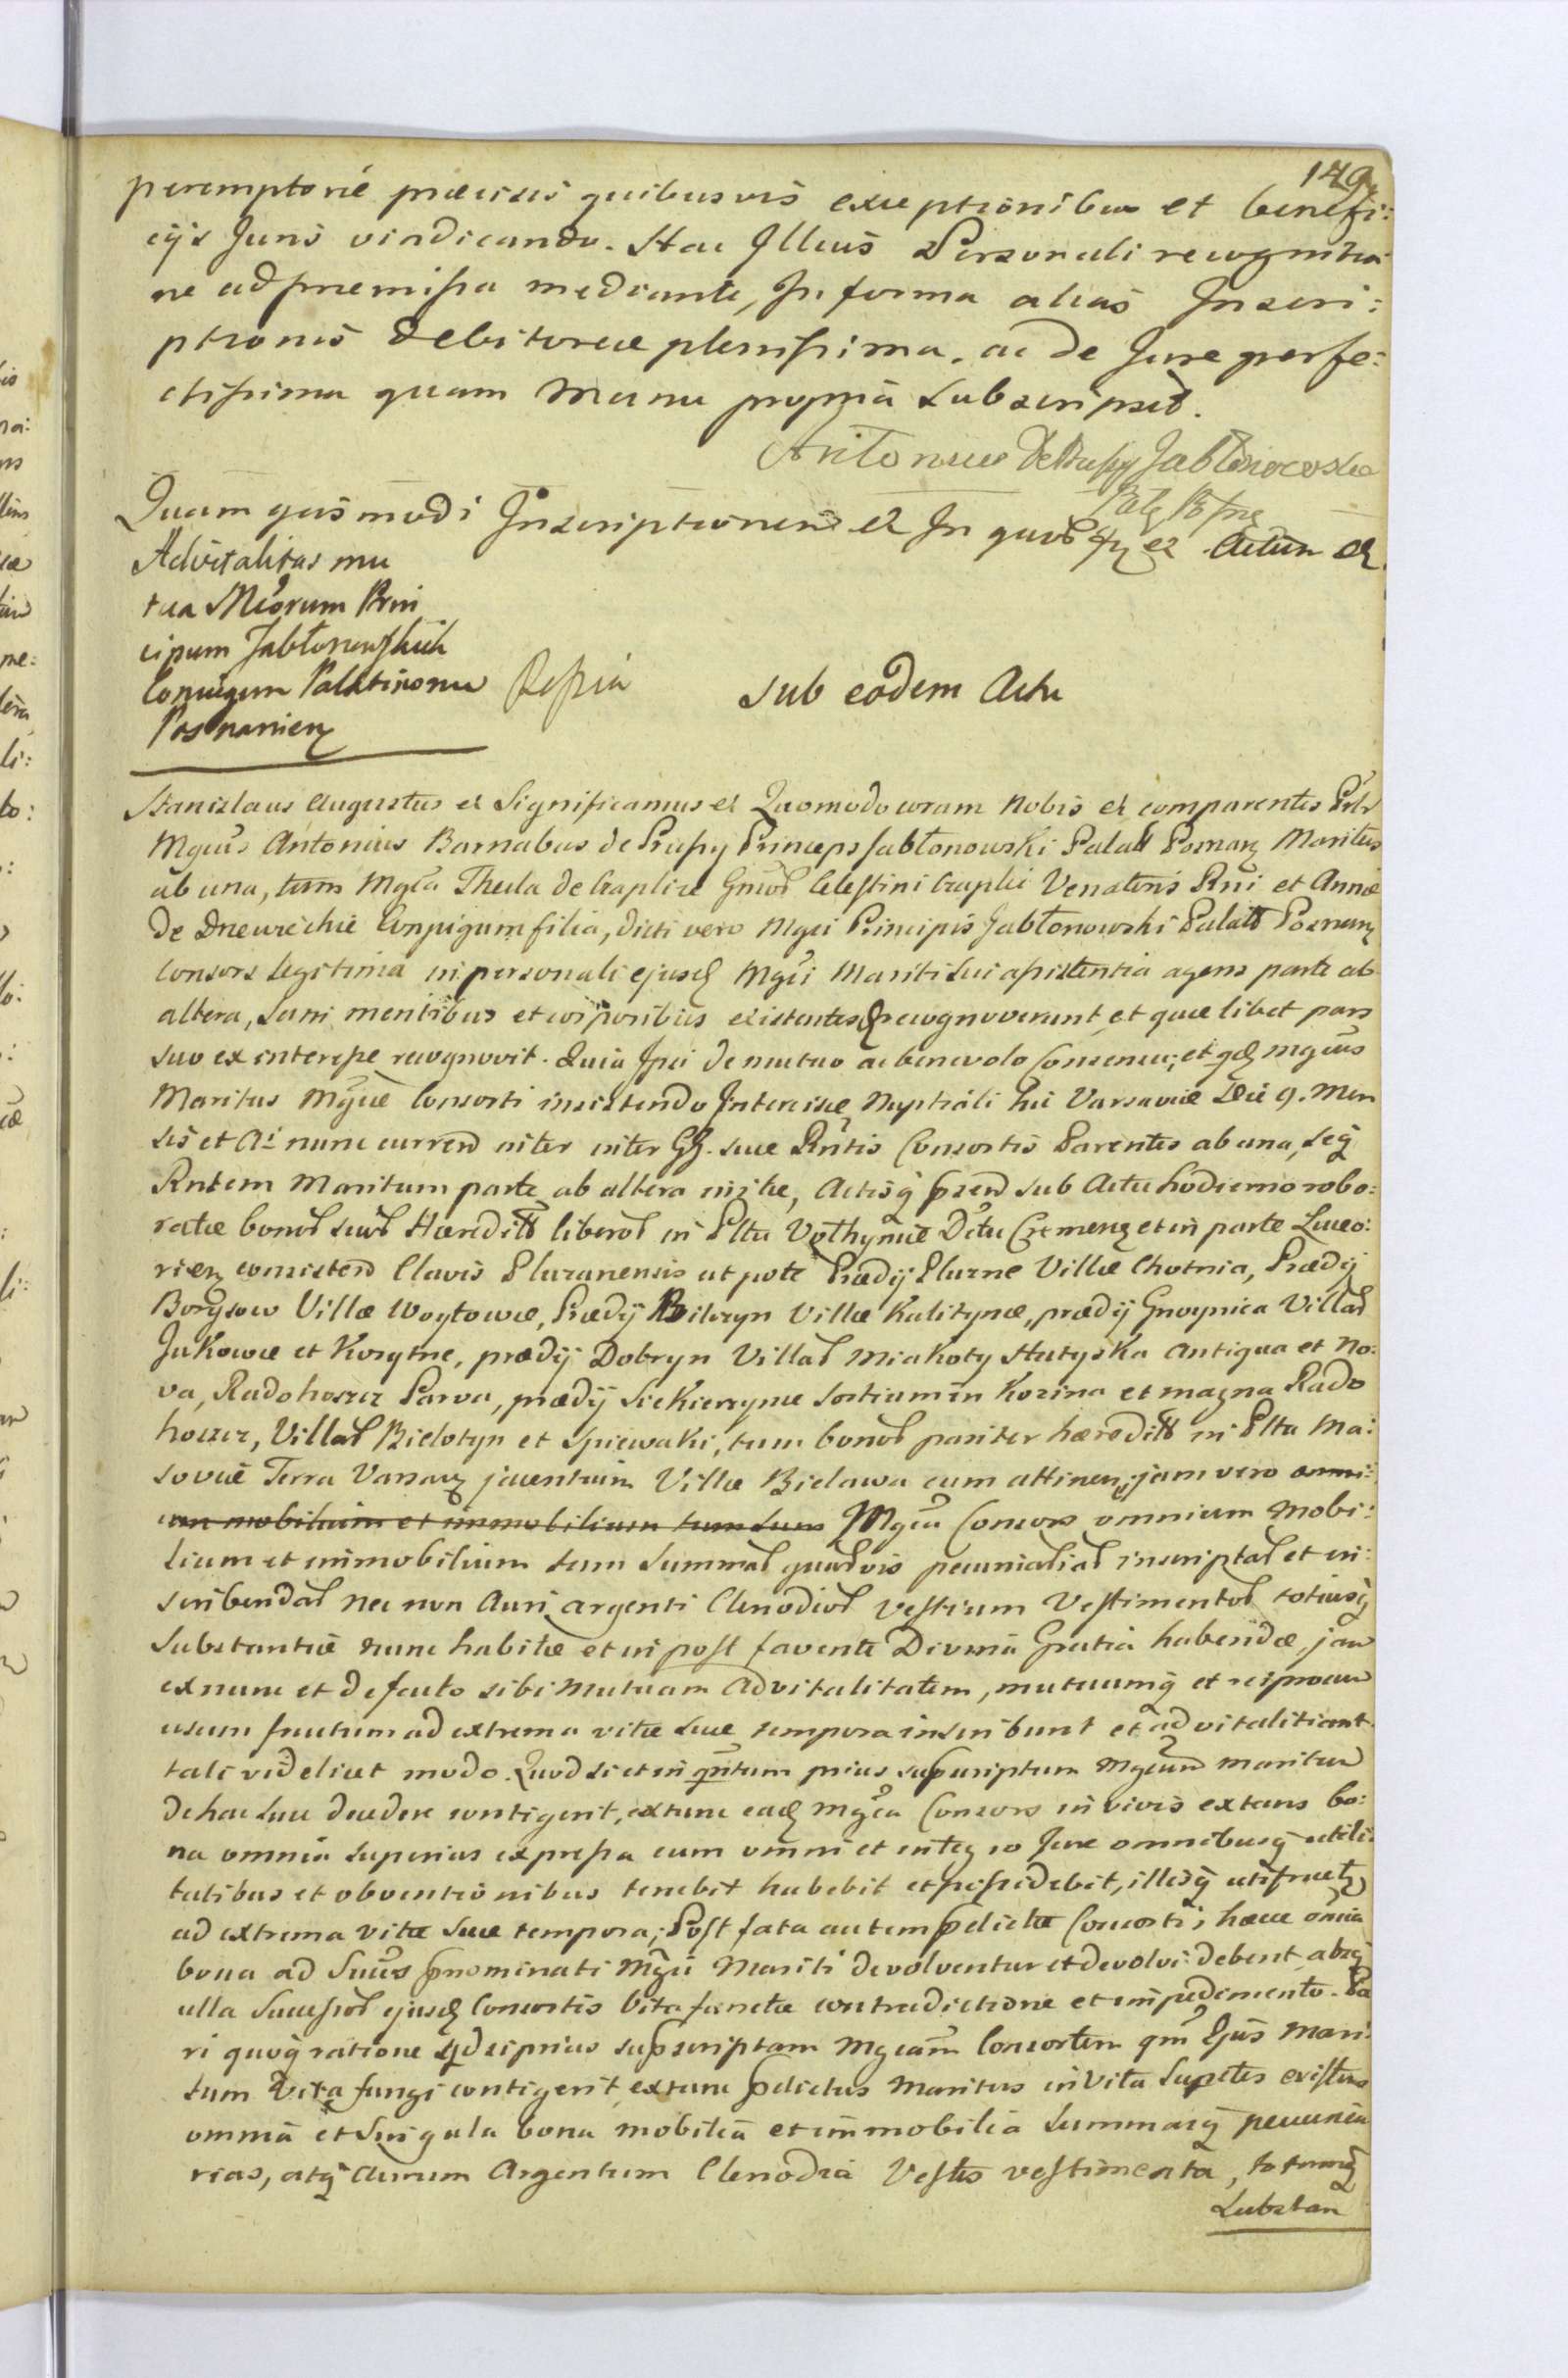 149
peremptorié praecisis quibusvis exceptionibus et benefi:
cijs Juris vindicando. Hac Illius Personali recognitio
ne ad praemissa mediante, In forma alias Inscri:
ptionis debitoreae plenissima, ac de Jure perfe:
ctissima quam Manu propria Subscripsit.
Antonius Jabłonowski
Quam ejusmodi Inscriptionem et In quod et Actum
Advitalitas mu
tua Mcorum Prin
cipum Jabłonowskich
Conjugum Palatinorum
Posnanien
Rssia sub eodem Actu
Stanislaus Augustus et Significamus et Quomodo coram Nobis et comparentes
Mgcus Antonius Barnabas de Prussy Princeps Jabłonowski Palatt Posnan Maritus
ab una, tum Mgca Thecla de Czaplice Gnrod Celestini Czaplic Venatoris Rni et Annae
de conjugum filia, dicti vero Mgci Principis Jabłonowski Palatt Posnan
consors legitima in personali ejusd Mgci Mariti sui assistentia agens parte ab
altera, sani mentibus et corporibus existentes recognoverunt et quae libet pars
suo ex interesse recognovit. Quia Ipsi de mutuo ac benevolo Consensu, et qd Mgcus
Maritus Mgcae Consorti insistendo Intercisae Nuptiali hic Varsaviae Die 9. Men
sis et Ai nunc curren niter inter GG. suae Rntis Consortis Parentes ab una, seq
Rntem Maritum parte ab altera initae, Actisq pzen sub Actu hodierno robo:
ratae bonod suod Haeredittt liberod in Pltu Vołhyniae Dctu Cremenz et in parte Luceo:
rien consisten Clavis Pluzanensis ut pote Praedij Pluzne Villae Chotnia, Praedij
Borysow Villae Woytowce, Praedij Bilczyn Villae Kulitynce, praedij Gnoynica Villad
Jukowce et Korytne, praedij Dobryn Villad Miakoty Hutyska Antiqua et No:
va, Radohoszcz Parva, praedij Siekierzynce Sortium in Kozina et magna Rado
hoszcz, Villad Bielotyn et Spiewaki, tum bonod pariter haeredittt in Pltu Ma:
soviae Terra Varsav jacentium Villae Bielawa cum attinen, jam vero omni:
um mobilium et immobilium tum Sum Mgca Consors omnium Mobi:
lium et immobilium tum Summad quadvis pecuniariad inscriptad et in:
scribendad nec non Auri argenti Clenodiod Vestium Vestimentod totiusq
Substantiae nunc habitae et in post favente Divina Gratia habendae, jam
ex nunc et de facto sibi Mutuam Advitalitatem, mutuumq et reciprocum
usum fructum ad extrema vitae suae tempora inscribunt et advitalitiant
tali videlicet modo. Quod si et in qntum prius supscriptum Mgcum Maritum
de hac luce decedere contigerit, extunc ead Mgca Consors in vivis extans bo:
na omnia superius expressa cum omni et integro Jure omnibusq utili:
tatibus et obventionibus tenebit habebit et possidebit, illisq utifruet
ad extrema vitae suae tempora; Post fata autem pdictae Consortis, haec omnia
bona ad Succs pnominati Mgci Mariti devolventur et devolvi debent absq
ulla Successod ejusd Consortis vita functae contradictione et impedimento. Pa
ri quoq ratione qd si prius supscriptam Mgcam Consortem qm Ejus Mari:
tum Vita fungi contigerit, extunc pdictus Maritus in Vita Suptes existens
omnia et Singula bona mobilia et immobilia Summasq pecunia
rias, atq Aurum Argentum Clenodia Vestes vestimenta, totamq
Substan